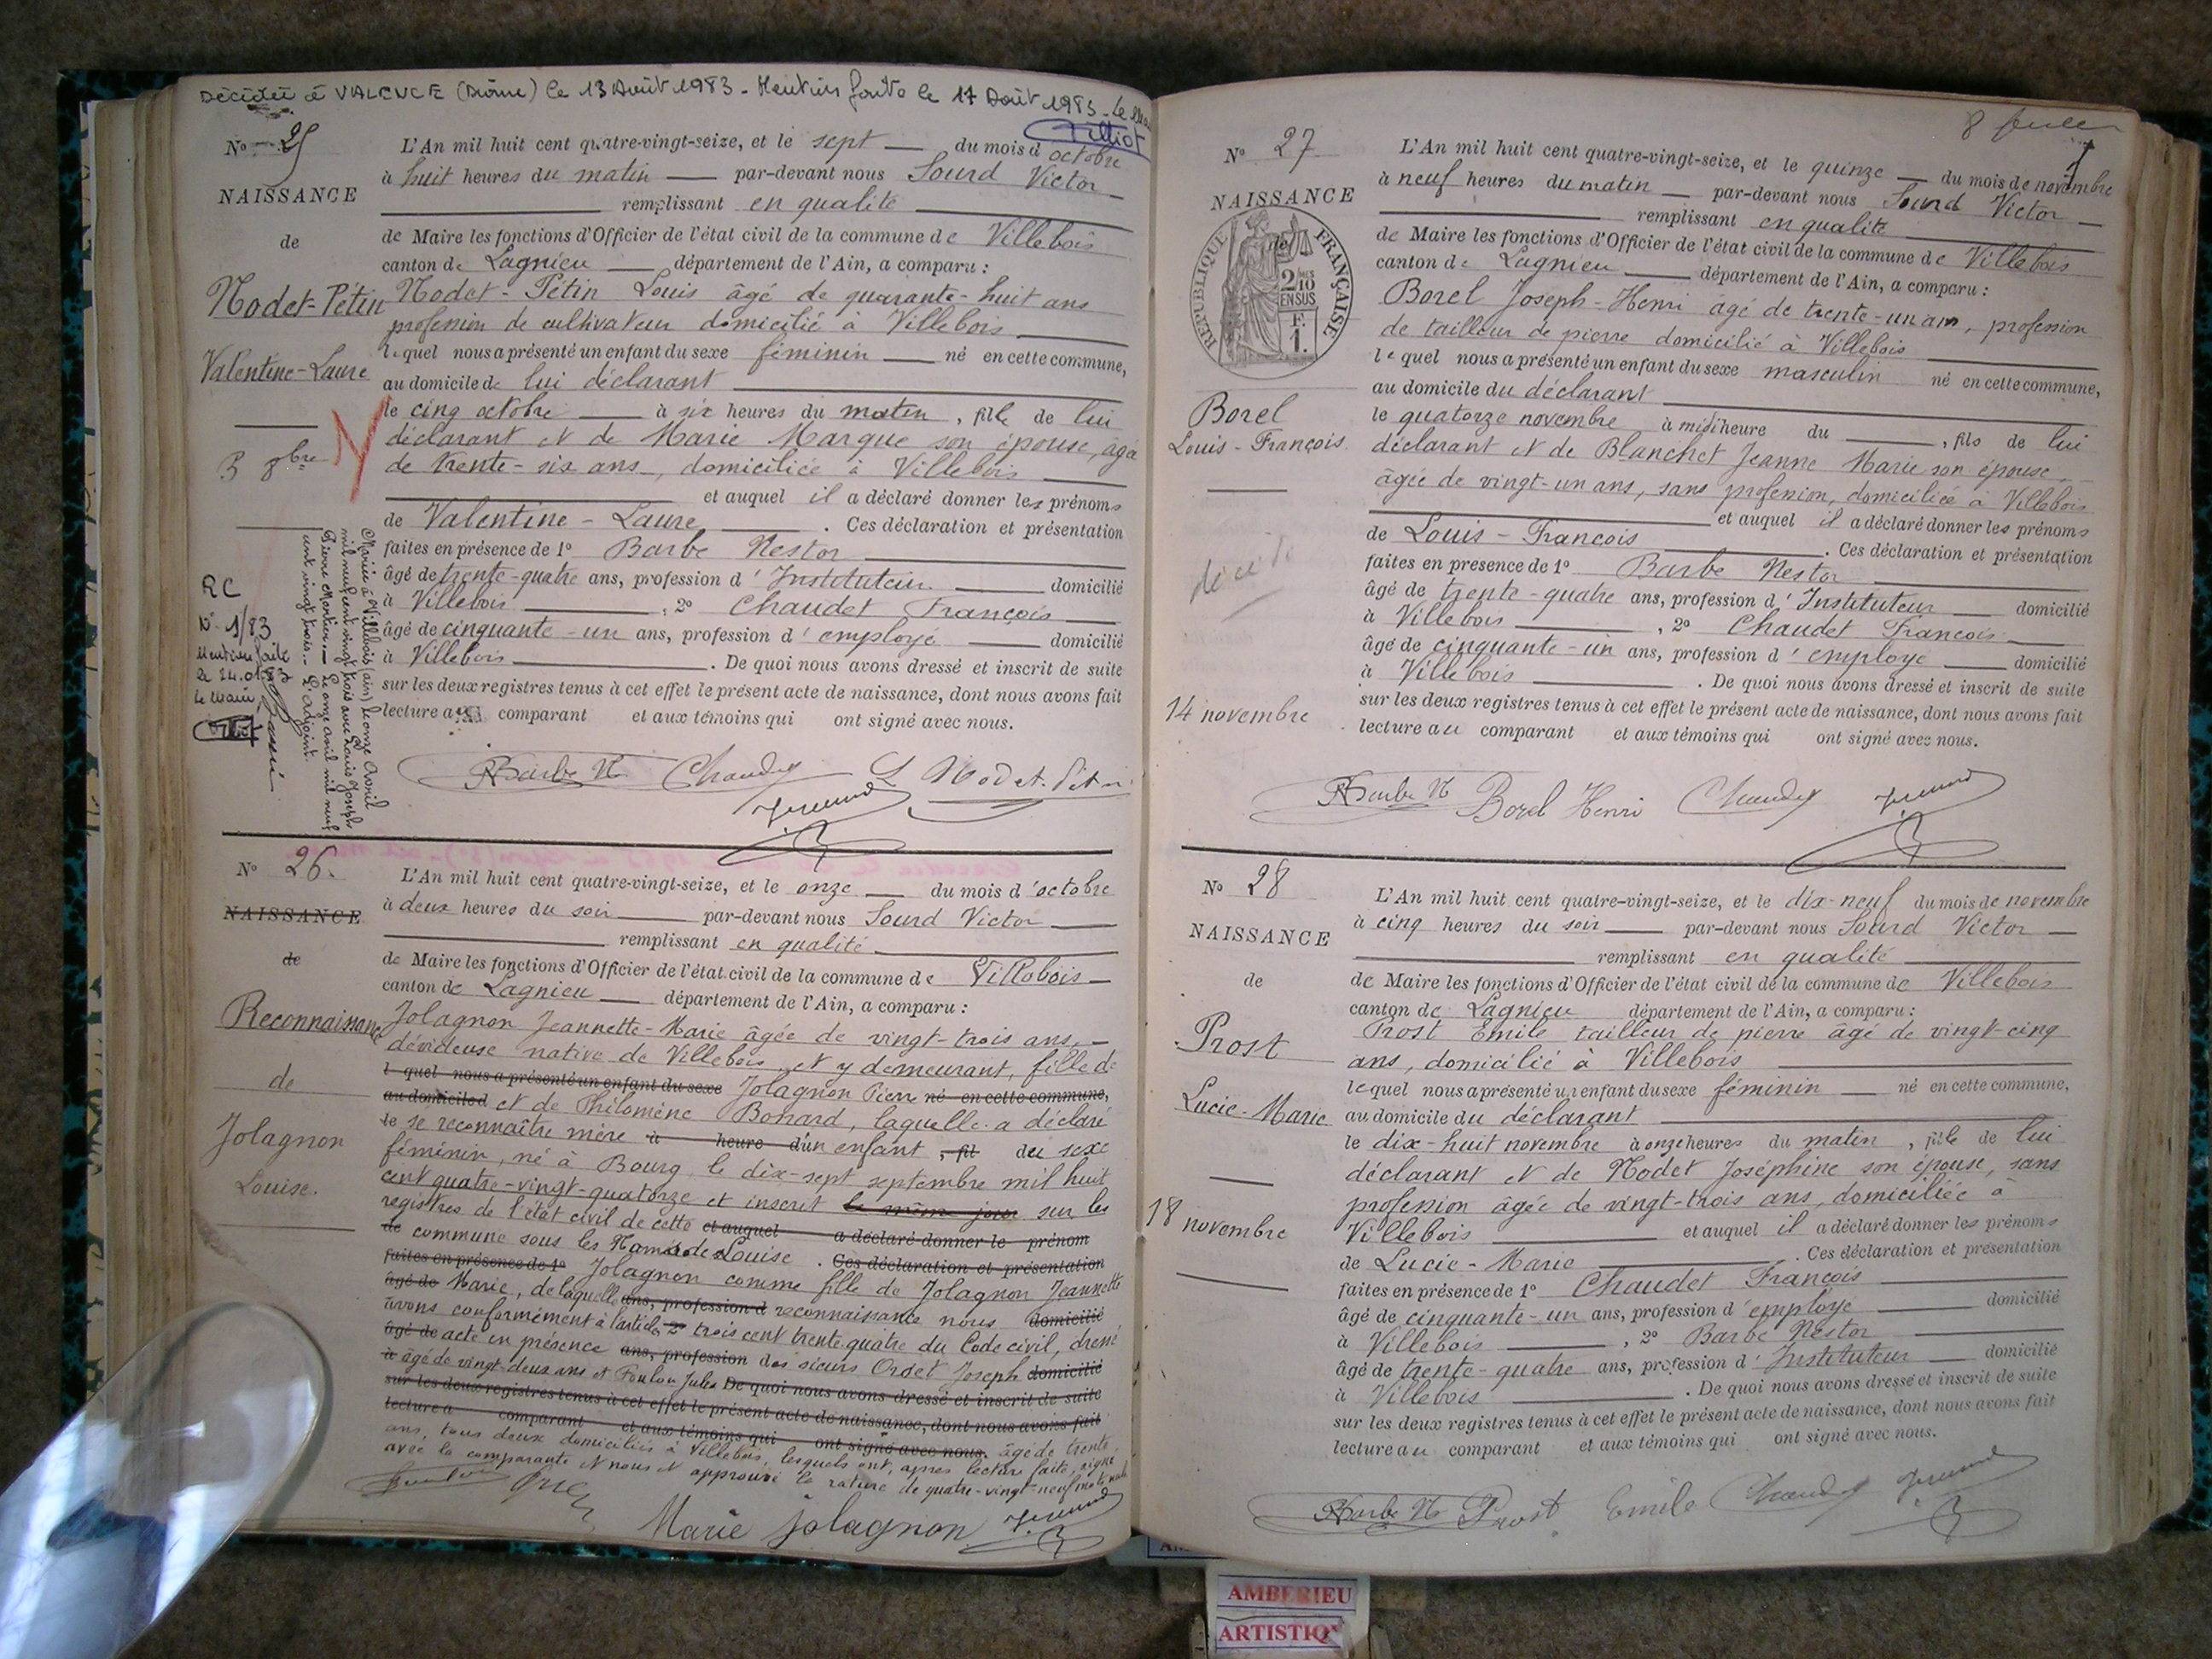 Décédée à VALENCE (Drôme) le 13 Août 1983 - Mention faite le 17 Août 1983 - Le
Tilliot
No 25
NAISSANCE
de
Nodet-Pétin
Valentine-Laure
5 8bre
RC
No 1/83
Mention faite
le 24.01
Le Maire
Mariée à Villebois (Ain) le onze Avril
mil neuf cent vingt trois avec Louis Joseph
Pierre Montier. — Le onze avril mil neuf
cent vingt trois. — L'adjoint.
L'An mil huit cent quatre-vingt-seize, et le sept — du mois d'octobre
à huit heures du matin — par-devant nous Sourd Victor
remplissant en qualité
de Maire les fonctions d'Officier de l'état civil de la commune de Villebois
canton de Lagnieu — département de l'Ain, a comparu :
Nodet-Pétin Louis âgé de quarante-huit ans
profession de cultivateur domicilié à Villebois
lequel nous a présenté un enfant du sexe féminin — né en cette commune,
au domicile de lui déclarant
le cinq octobre — à six heures du matin, fille de lui
déclarant et de Marie Marque son épouse, âgée
de trente-six ans, domiciliée à Villebois
et auquel il a déclaré donner les prénoms
de Valentine-Laure. Ces déclaration et présentation
faites en présence de 1o Barbe Nestor
âgé de trente-quatre ans, profession d'Instituteur — domicilié
à Villebois, 2o Chaudet François
âgé de cinquante-un ans, profession d'employé — domicilié
à Villebois. De quoi nous avons dressé et inscrit de suite
sur les deux registres tenus à cet effet le présent acte de naissance, dont nous avons fait
lecture au comparant et aux témoins qui ont signé avec nous.
Barbe N Chaudet L Nodet-Petin
No 26.
NAISSANCE
de
Reconnaissance
de
Jolagnon
Louise.
L'An mil huit cent quatre-vingt-seize, et le onze — du mois d'octobre
à deux heures du soir — par-devant nous Sourd Victor
remplissant en qualité
de Maire les fonctions d'Officier de l'état civil de la commune de Villebois
canton de Lagnieu — département de l'Ain, a comparu :
Jolagnon Jeannette-Marie âgée de vingt-trois ans,
dévideuse native de Villebois et y demeurant, fille de
l quel nous a présenté un enfant du sexe Jolagnon Pierre né en cette commune,
au domicile d et de Philomène Bonard, laquelle a déclaré
le se reconnaître mère à heure d'un enfant, fil du sexe
féminin, né à Bourg le dix-sept septembre mil huit
cent quatre-vingt-quatorze et inscrit le même jour sur les
registres de l'état civil de cette et auquel a déclaré donner le prénom
de commune sous les Noms de Louise. Ces déclaration et présentation
faites en présence de 1o Jolagnon comme fille de Jolagnon Jeannette
âgé de Marie, de laquelle ans, profession d reconnaissance nous domicilié
avons conformément à l'article 2o trois cent trente quatre du Code civil, dressé
âgé de acte en présence ans, profession des sieurs Ordet Joseph domicilié
à âgé de vingt-deux ans et Poulon Jules De quoi nous avons dressé et inscrit de suite
sur les deux registres tenus à cet effet le présent acte de naissance, dont nous avons fait
lecture a comparant et aux témoins qui ont signé avec nous. âgé de trente
ans, tous deux domiciliés à Villebois, lesquels ont, après lecture faite, signé
avec la comparante et nous et approuvé la rature de quatre-vingt-neuf mots nuls
Marie jolagnon
8 
No 27
NAISSANCE
de
REPUBLIQUE FRANÇAISE
2/10 EN SUS
F.
1.
Borel
Louis-François
décédé
14 novembre
L'An mil huit cent quatre-vingt-seize, et le quinze — du mois de novembre
à neuf heures du matin — par-devant nous Sourd Victor
remplissant en qualité
de Maire les fonctions d'Officier de l'état civil de la commune de Villebois
canton de Lagnieu — département de l'Ain, a comparu :
Borel Joseph-Henri âgé de trente-un ans, profession
de tailleur de pierre domicilié à Villebois
lequel nous a présenté un enfant du sexe masculin né en cette commune,
au domicile du déclarant
le quatorze novembre, à midi heure du —, fils de lui
déclarant et de Blanchet Jeanne Marie son épouse,
âgée de vingt-un ans, sans profession, domiciliée à Villebois
et auquel il a déclaré donner les prénoms
de Louis-François. Ces déclaration et présentation
faites en présence de 1o Barbe Nestor
âgé de trente-quatre ans, profession d'Instituteur — domicilié
à Villebois, 2o Chaudet François
âgé de cinquante-un ans, profession d'employé — domicilié
à Villebois. De quoi nous avons dressé et inscrit de suite
sur les deux registres tenus à cet effet le présent acte de naissance, dont nous avons fait
lecture au comparant et aux témoins qui ont signé avec nous.
Barbe N Borel Henri Chaudet
No 28
NAISSANCE
de
Prost
Lucie-Marie
18 novembre
L'An mil huit cent quatre-vingt-seize, et le dix-neuf du mois de novembre
à cinq heures du soir — par-devant nous Sourd Victor —
remplissant en qualité
de Maire les fonctions d'Officier de l'état civil de la commune de Villebois
canton de Lagnieu département de l'Ain, a comparu :
Prost Emile tailleur de pierre âgé de vingt-cinq
ans, domicilié à Villebois
lequel nous a présenté un enfant du sexe féminin — né en cette commune,
au domicile du déclarant
le dix-huit novembre à onze heures du matin, fille de lui
déclarant et de Nodet Joséphine son épouse, sans
profession âgée de vingt-trois ans, domiciliée à
Villebois et auquel il a déclaré donner les prénoms
de Lucie-Marie. Ces déclaration et présentation
faites en présence de 1o Chaudet François
âgé de cinquante-un ans, profession d'employé domicilié
à Villebois, 2o Barbe Nestor
âgé de trente-quatre ans, profession d'Instituteur — domicilié
à Villebois. De quoi nous avons dressé et inscrit de suite
sur les deux registres tenus à cet effet le présent acte de naissance, dont nous avons fait
lecture au comparant et aux témoins qui ont signé avec nous.
Barbe N Prost Emile Chaudet
AMBERIEU
ARTISTIQ